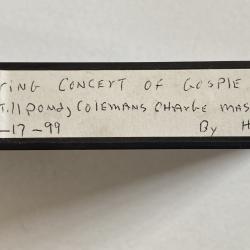 ING CONCERT OF GOSPLE
TillPONd, COLEMANS CHARGE MAS
-17-99 By H